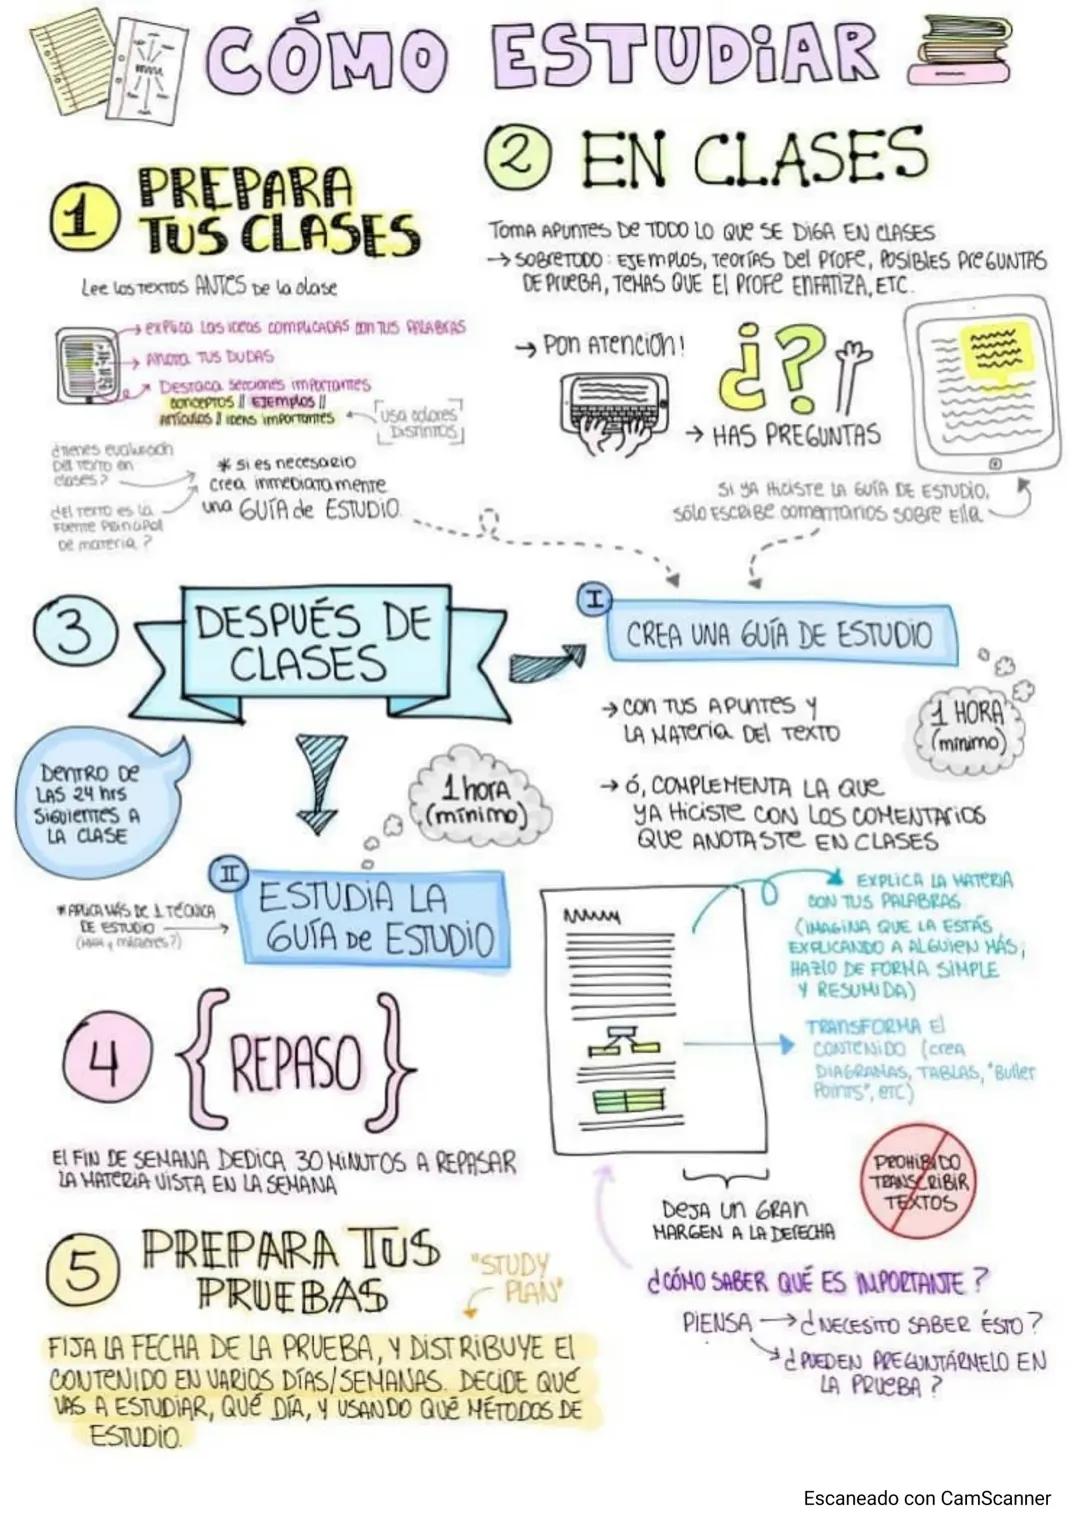 CÓMO ESTUDiAR
1 PREPARA
TUS CLASES
Lee los TEXTOS ANTES De la clase
→ explica las ideas complicadas con tus palabras
→ Anota tus dudas
→ Destaca secciones importantes
conceptos || Ejemplos ||
Artículos || ideas importantes
[usa colores
Distintos]
¿tienes evaluación
Del texto en
clases?
¿El texto es la
Fuente Principal
De materia?
* si es necesario
crea inmediatamente
una GUÍA de ESTUDIO
2 EN CLASES
Toma APUNTES De TODO LO QUE SE DIGA EN CLASES
→ SOBRETODO: EJEMPLOS, TEORÍAS Del PROFE, POSIBLES PREGUNTAS
DE PRUEBA, TEMAS QUE El PROFE ENFATIZA, ETC.
→ PON ATENCIÓN!
¿?
→ HAS PREGUNTAS
SI YA HICISTE LA GUÍA DE ESTUDIO,
SÓLO ESCRIBE COMENTARIOS SOBRE Ella
3 DESPUÉS DE
CLASES
DENTRO De
LAS 24 hrs
Siguientes A
LA CLASE
I CREA UNA GUÍA DE ESTUDIO
1 HORA
(mínimo)
→ CON TUS APUNTES Y
LA MATERIA DEL TEXTO
→ Ó, COMPLEMENTA LA QUE
YA HICISTE CON LOS COMENTARIOS
QUE ANOTASTE EN CLASES
1 hora
(mínimo)
II ESTUDIA LA
GUÍA De ESTUDIO
* APLICA MÁS DE 1 TÉCNICA
DE ESTUDIO
EXPLICA LA MATERIA
CON TUS PALABRAS
(IMAGINA QUE LA ESTÁS
EXPLICANDO A ALGUIEN MÁS,
HAZLO DE FORMA SIMPLE
Y RESUMIDA)
TRANSFORMA El
CONTENIDO (crea
DIAGRAMAS, TABLAS, "Bullet
Points", etc)
PROHIBIDO
TRANSCRIBIR
TEXTOS
DEJA UN GRAN
MARGEN A LA DERECHA
4 {REPASO}
El FIN DE SEMANA DEDICA 30 MINUTOS A REPASAR
LA MATERIA VISTA EN LA SEMANA
¿CÓMO SABER QUÉ ES IMPORTANTE?
PIENSA → ¿NECESITO SABER ÉSTO?
→ ¿PUEDEN PREGUNTÁRMELO EN
LA PRUEBA?
5 PREPARA TUS
PRUEBAS
"STUDY
PLAN"
FIJA LA FECHA DE LA PRUEBA, Y DISTRIBUYE El
CONTENIDO EN VARIOS DÍAS/SEMANAS. DECIDE QUÉ
VAS A ESTUDIAR, QUÉ DÍA, Y USANDO QUÉ MÉTODOS DE
ESTUDIO.
Escaneado con CamScanner